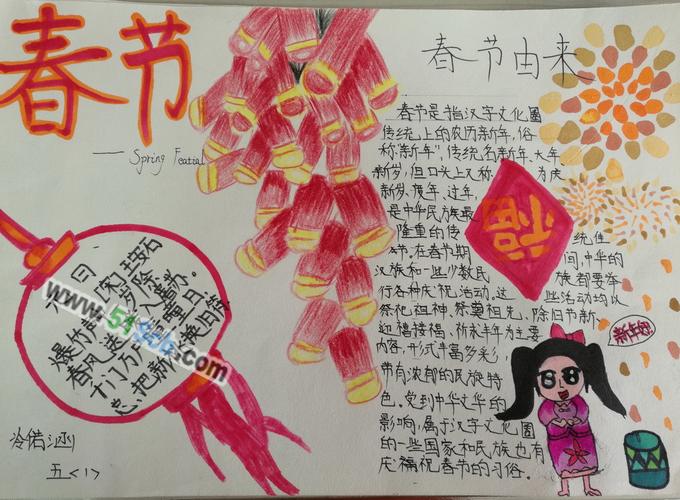 春节
—— Spring Festial
元日
[宋]王安石
爆竹声中一岁除,
春风送暖入屠苏。
千门万户曈曈日,
总把新桃换旧符
冷偌涵
五<1>
春节由来
春节是指汉字文化圈
传统上的农历新年,俗
称“新年”,传统名新年、大年、
新岁,但口头上又称 为庆
新岁、度年、过年,
是中华民族最
隆重的传 统佳
节。在春节期 间,中华的
汉族和一些少数民 族都要举
行各种庆祝活动。这 些活动均以
祭祀祖神、祭奠祖先、除旧布新、
迎禧接福、祈求丰年为主要
内容,形式丰富多彩,
带有浓郁的民族特
色。受到中华文华的
影响,属于汉字文化圈
的一些国家和民族也有
庆福祝春节的习俗。
福